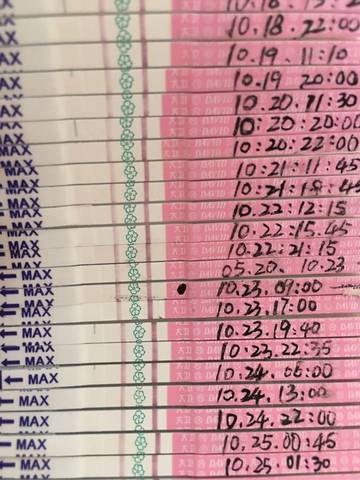 10.18.22:00
MAX 10.19.11:10
MAX 10.19 20:00
MAX 10.20.11:30
MAX 10:20:20:00
MAX 10:20:22:00
MAX 10:21:11:45
MAX
MAX 10.22:12:15
MAX 10.22:15.45
MAX 10.22:21:15
MAX 05.20. 10.23
MAX 10.23.09:00
MAX 10.23.17:00
MAX 10.23.19:40
MAX 10.23.22:35
MAX 10.24.06:00
MAX 10.24.13:00
MAX 10.24.22:00
MAX 10.25.00:45
MAX 10.25.01:30